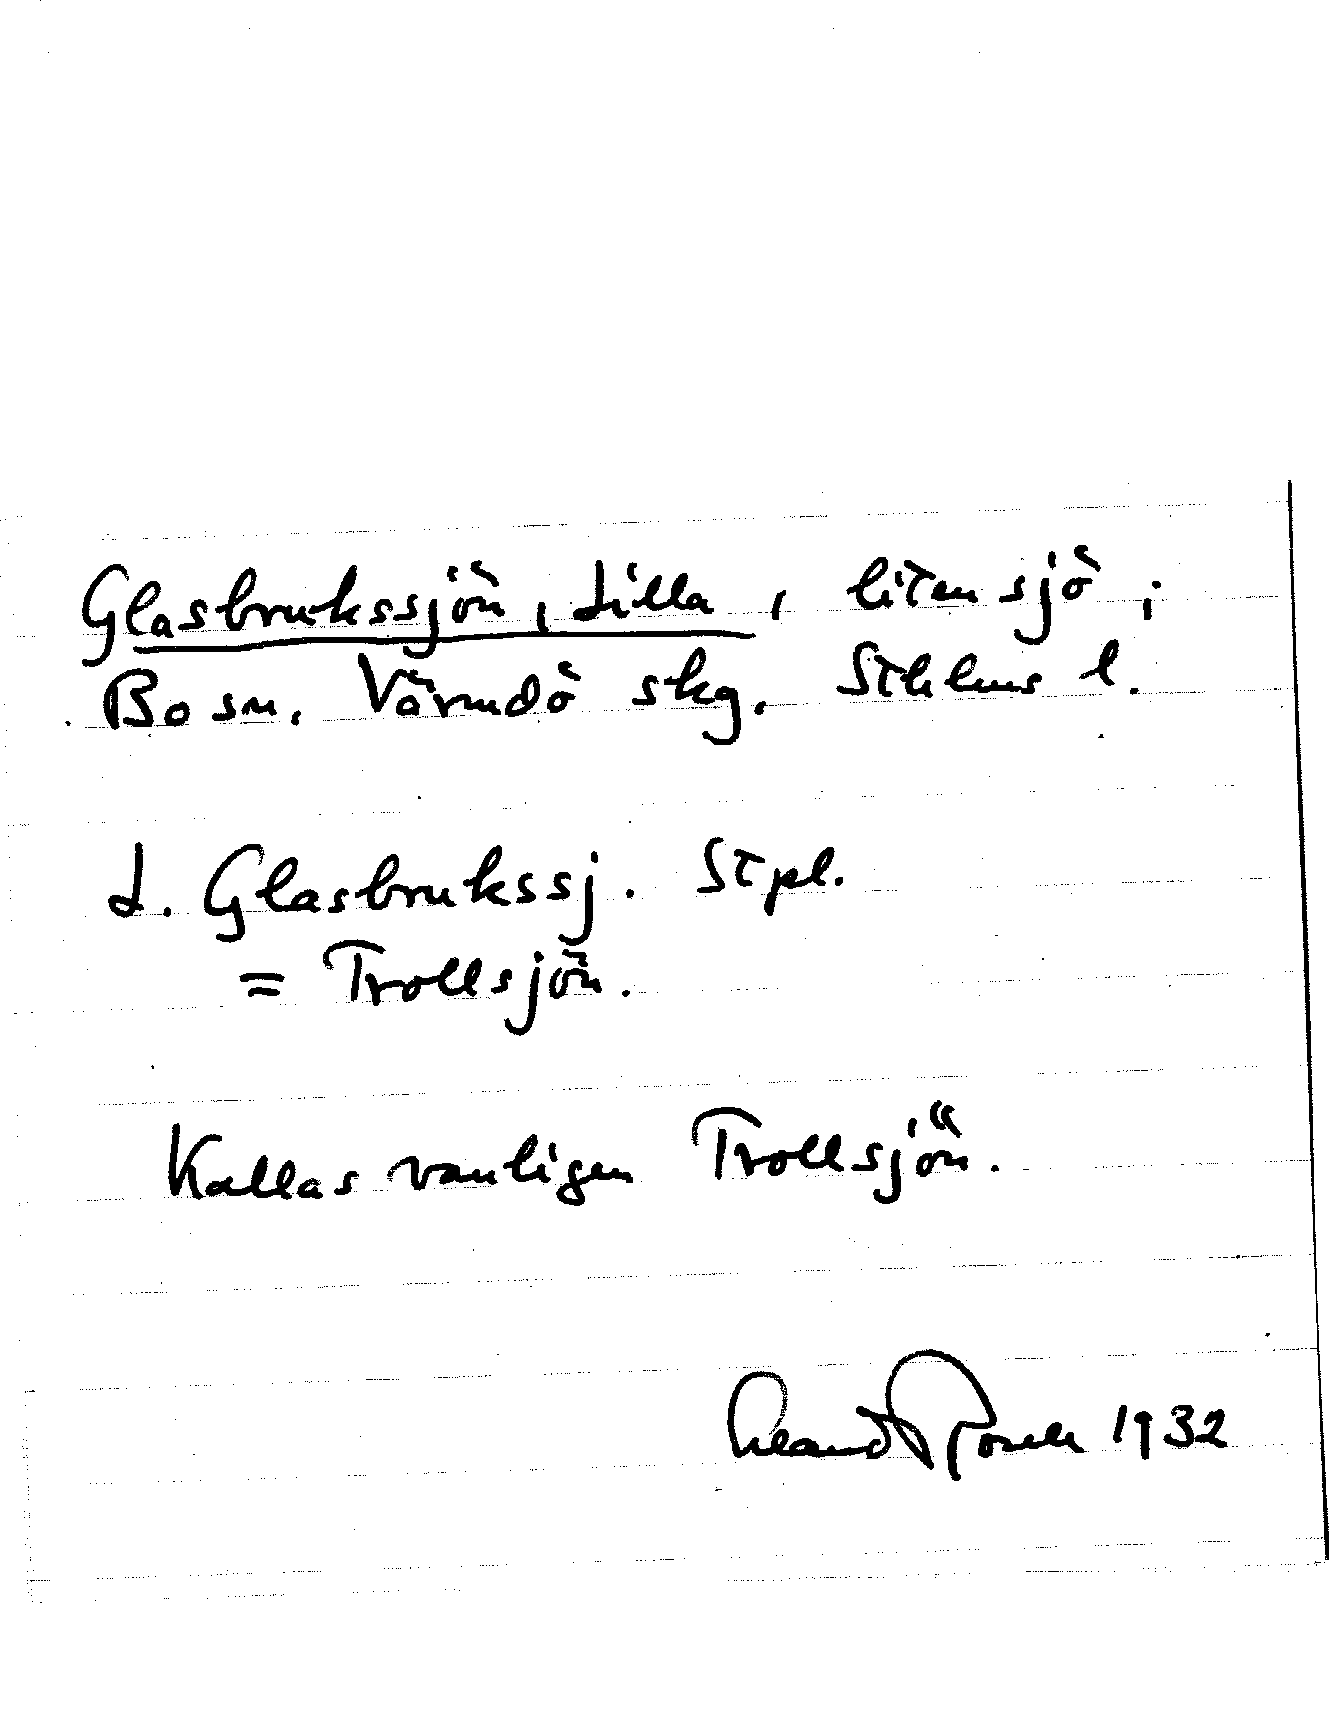 Glasbrukssjön, Lilla, liten sjö i
Bo sn. Värmdö skg. Sthlms l.
L. Glasbrukssj. Stpl.
= Trollsjön.
Kallas vanligen Trollsjön.
1932